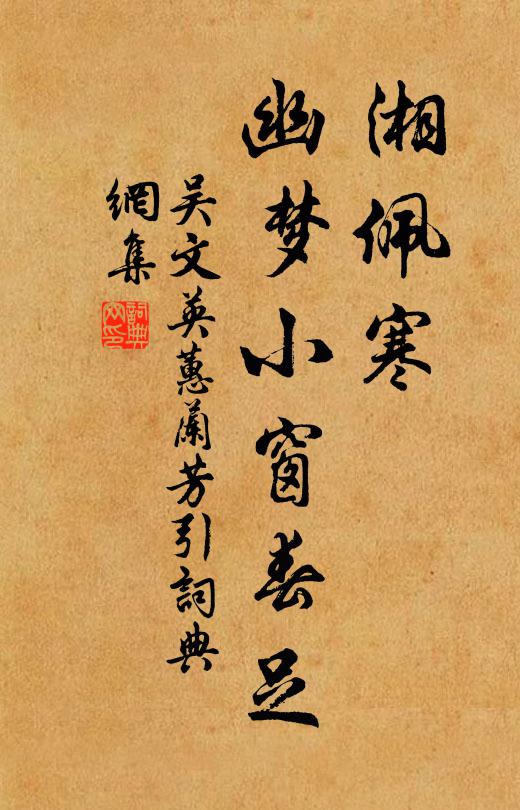 湘佩寒
幽梦小窗春足
吴文英蕙蘭芳引詞典
網集
詞典
之印